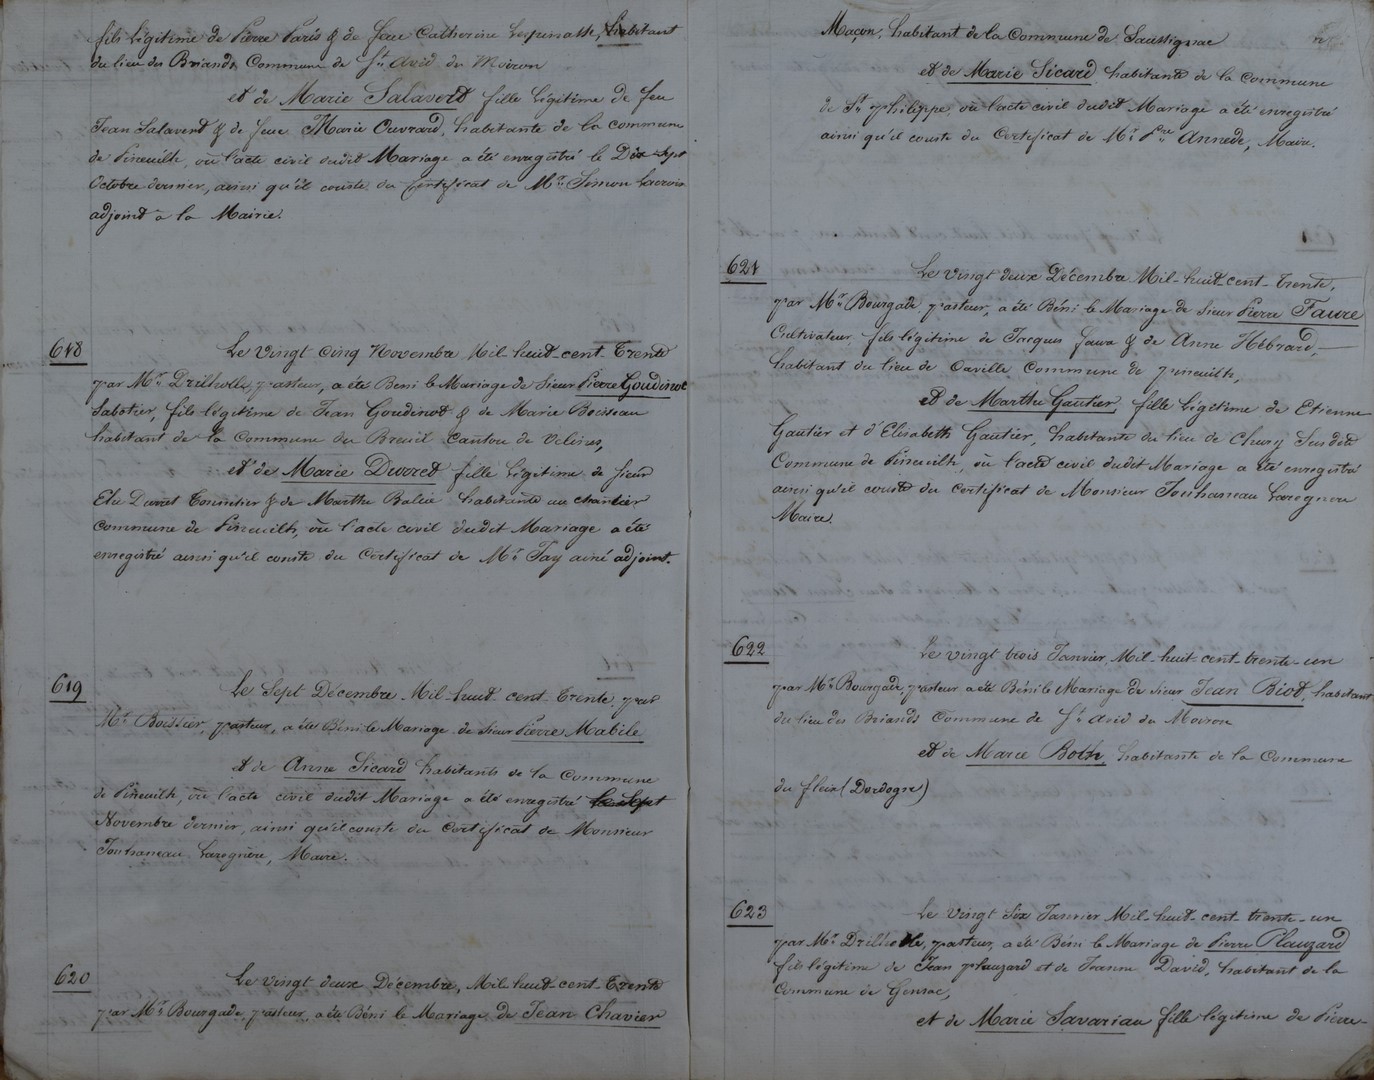 fils légitime de Pierre Paris & de feue Catherine Lespinasse, habitant
du lieu des Briands Commune de St. Avid du Moiron
et de Marie Salaverd fille légitime de feu
Jean Salaverd & de feue Marie Ouvrard, habitante de la commune
de Pineuilh, où l'acte civil dudit Mariage a été enregistré le Dix Sept
Octobre dernier, ainsi qu'il conste du Certificat de Mr. Simon Lacroix
adjoint à la Mairie.
618
Le Vingt cinq Novembre Mil-huit-cent-Trente
par Mr. Drilholle, pasteur, a été Béni le Mariage de Sieur Pierre Goudinot
Sabotier, fils légitime de Jean Goudinot & de Marie Boisseau
habitant de la Commune du Breuil Canton de Velines,
et de Marie Durret fille légitime de Sieur
Elu Durret Tonnelier & de Marthe Balie habitante au chantier
Commune de Pineuilh, où l'acte civil dudit Mariage a été
enregistré ainsi qu'il conste du Certificat de Mr. Jay ainé adjoint.
619
Le Sept Décembre Mil-huit-cent-Trente, par
Mr. Boissier, pasteur, a été Béni le Mariage de Sieur Pierre Mabile
et de Anne Sicard habitants de la Commune
de Pineuilh, où l'acte civil dudit Mariage a été enregistré
Novembre dernier, ainsi qu'il conste du Certificat de Monsieur
Jouhaneau Laregnère, Maire.
620
Le Vingt deux Décembre, Mil-huit-cent-Trente
par Mr. Bourgade, pasteur, a été Béni le Mariage de Jean Chavier
Maçon, habitant de la Commune de Saussignac
et de Marie Sicard habitante de la Commune
de St. Philippe, où l'acte civil dudit Mariage a été enregistré
ainsi qu'il conste du Certificat de Mr. Pre. Annede, Maire.
621
Le Vingt deux Décembre Mil-huit-cent-Trente,
par Mr. Bourgade, pasteur, a été Béni le Mariage de Sieur Pierre Faure
Cultivateur, fils légitime de Jacques Faure & de Anne Hébrard,
habitant du lieu de Caville Commune de Pineuilh,
et de Marthe Gautier, fille légitime de Etienne
Gautier et d'Elisabeth Gautier, habitante du lieu de Chury Susdite
Commune de Pineuilh, où l'acte civil dudit Mariage a été enregistré
ainsi qu'il conste du Certificat de Monsieur Jouhaneau Laregnère
Maire.
622
Le Vingt trois Janvier, Mil-huit-cent-trente-un
par Mr. Bourgade, pasteur a été Béni le Mariage de Sieur Jean Biot, habitant
du lieu des Briands Commune de St. Avid du Moiron
et de Marie Both, habitante de la Commune
du fleix (Dordogne)
623
Le Vingt Six Janvier Mil-huit-cent-trente-un
par Mr. Drilholle, pasteur, a été Béni le Mariage de Pierre Plauzard
fils légitime de Jean Plauzard et de Jeanne David, habitant de la
Commune de Gensac,
et de Marie Savariau fille légitime de Pierre-